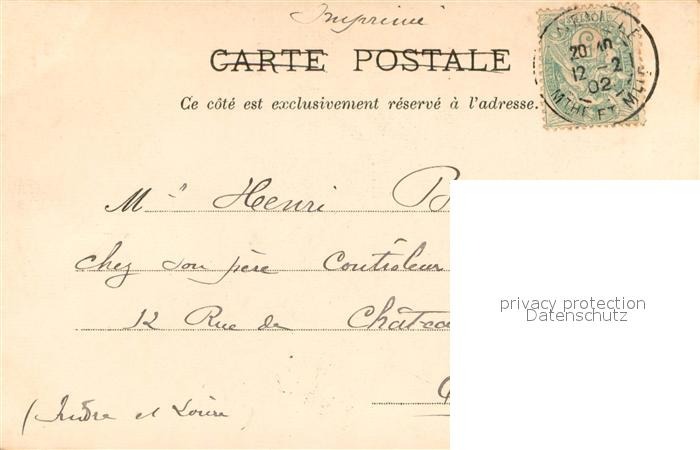 Imprimé
CARTE POSTALE
Ce côté est exclusivement réservé à l'adresse.
20
12 -2
02
MTHE ET MLLE
Mr Henri
chez son père Contrôleur
12 Rue de
(Indre et Loire)
privacy protection
Datenschutz